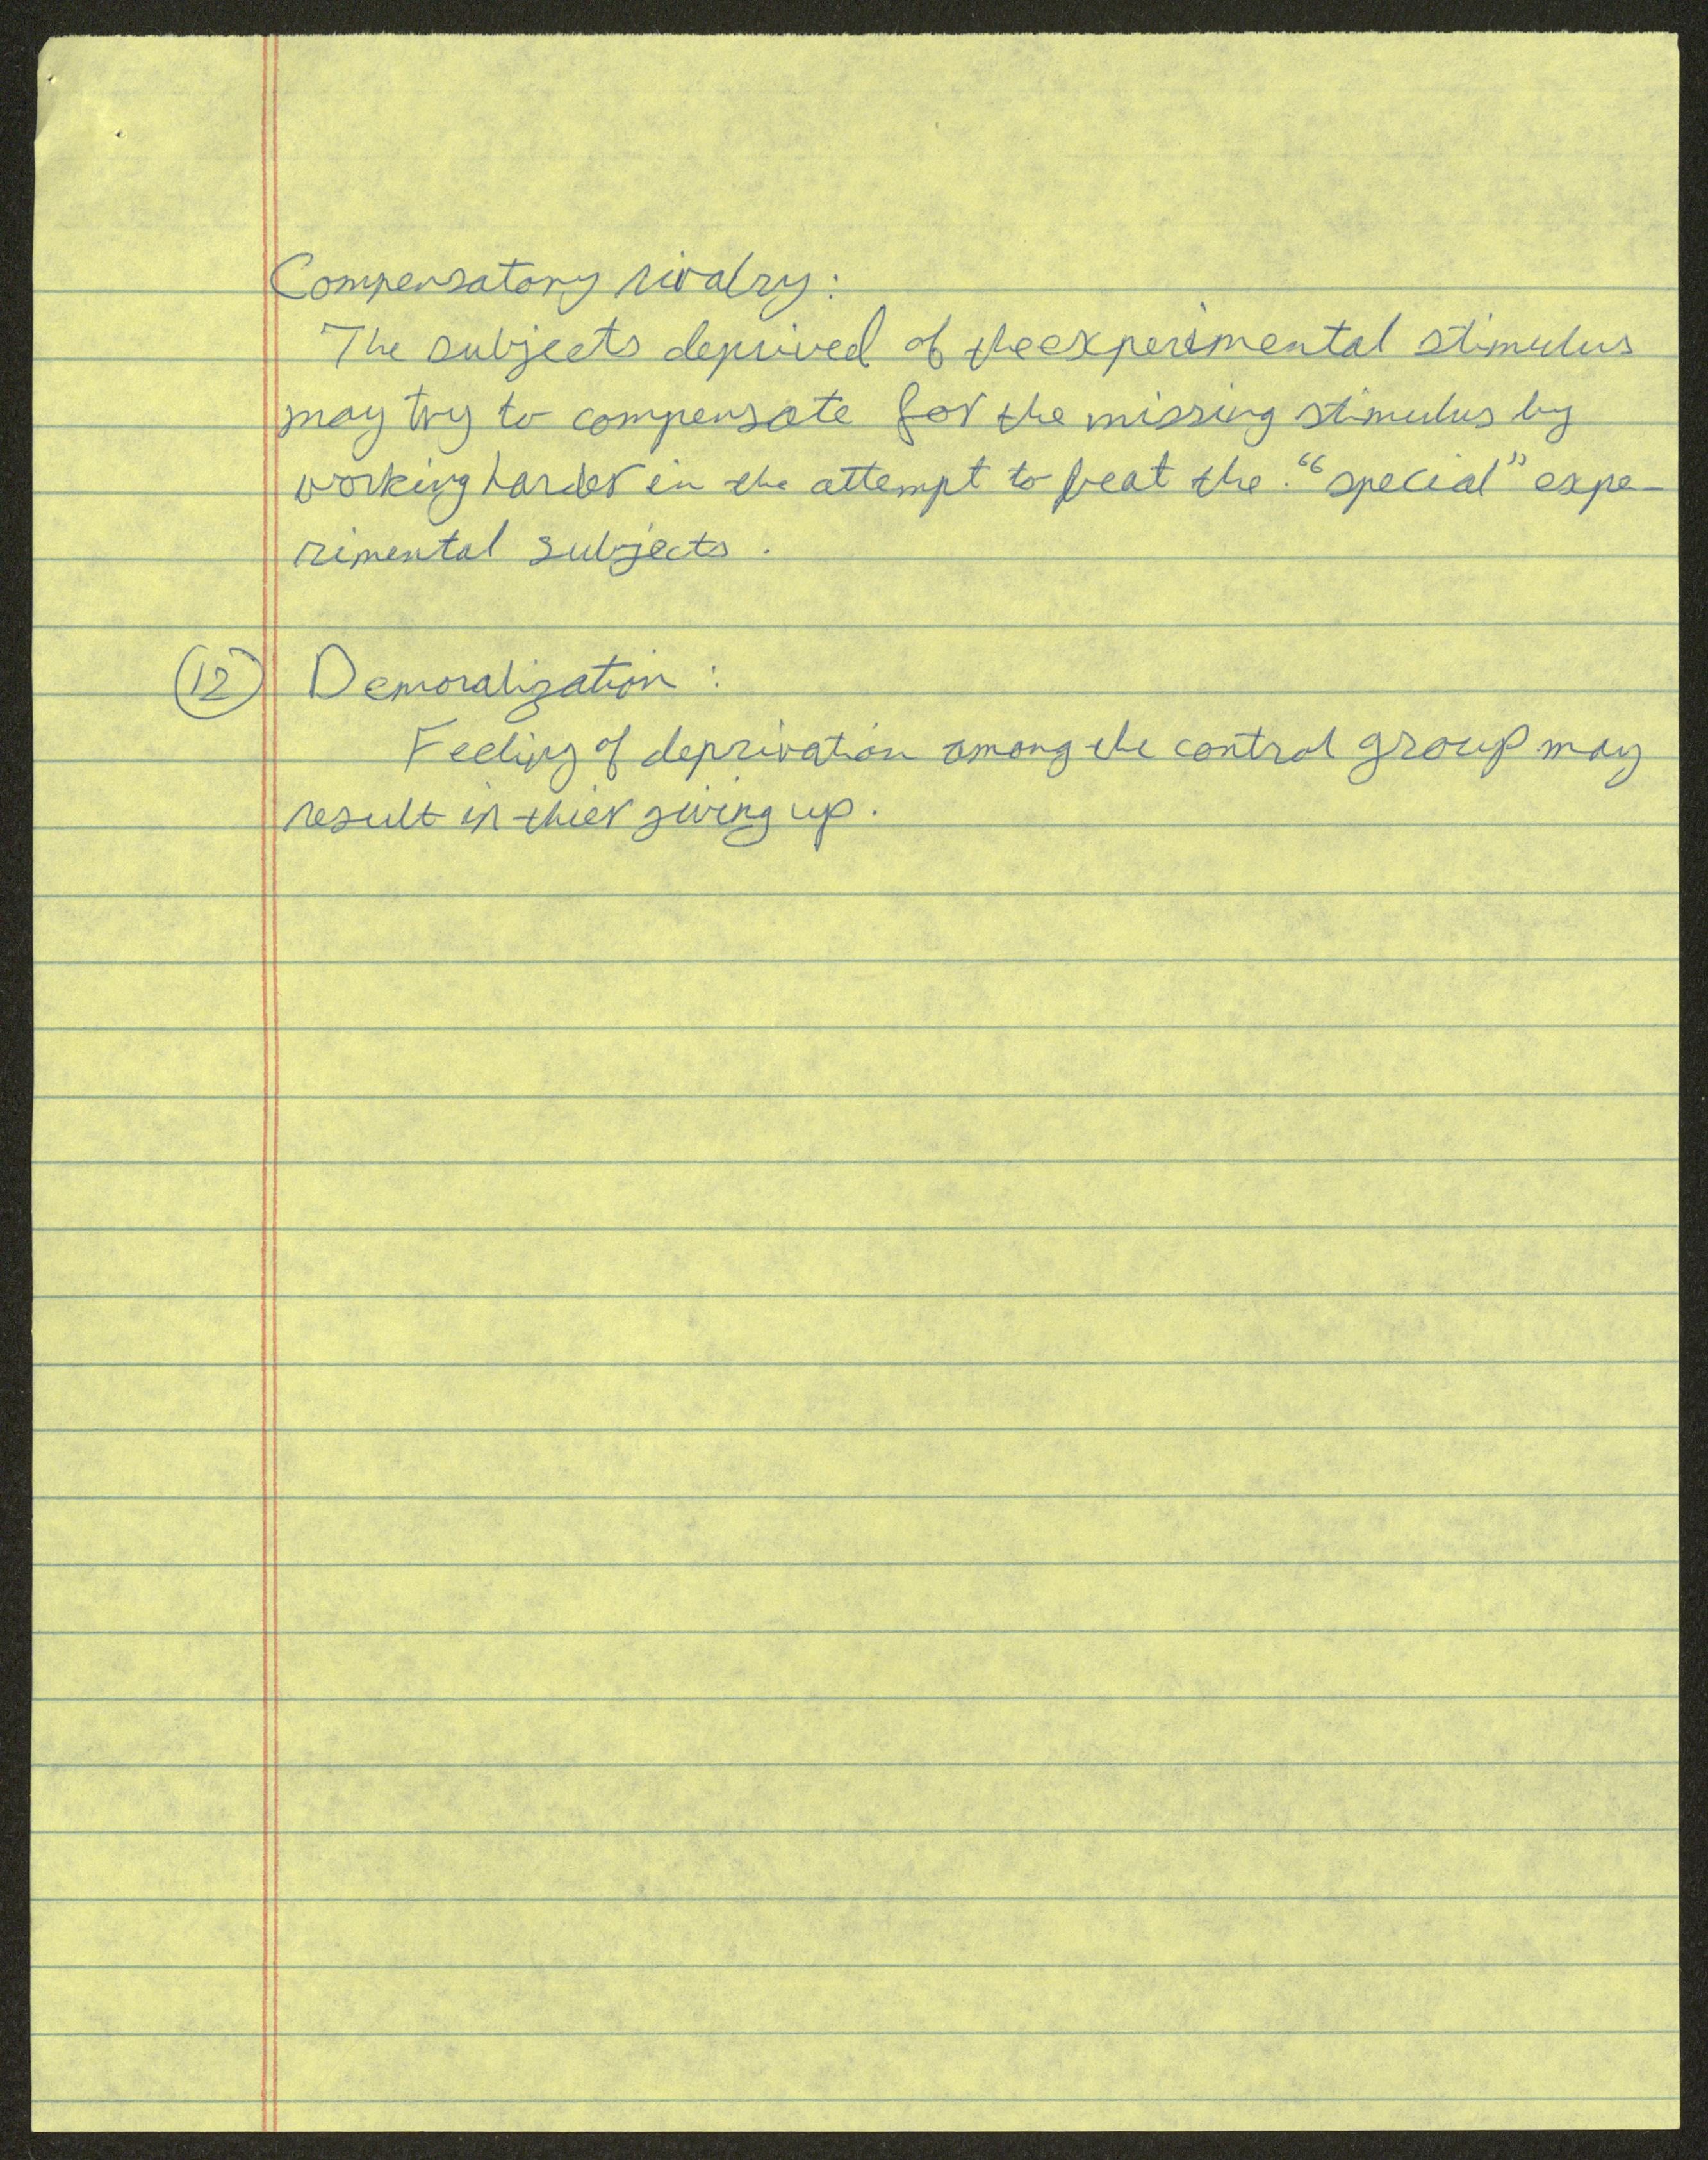 Compensatory rivalry:
The subjects deprived of the experimental stimulus
may try to compensate for the missing stimulus by
working harder in the attempt to beat the "special" expe-
rimental subjects.
(12) Demoralization:
Feeling of deprivation among the control group may
result in thier giving up.